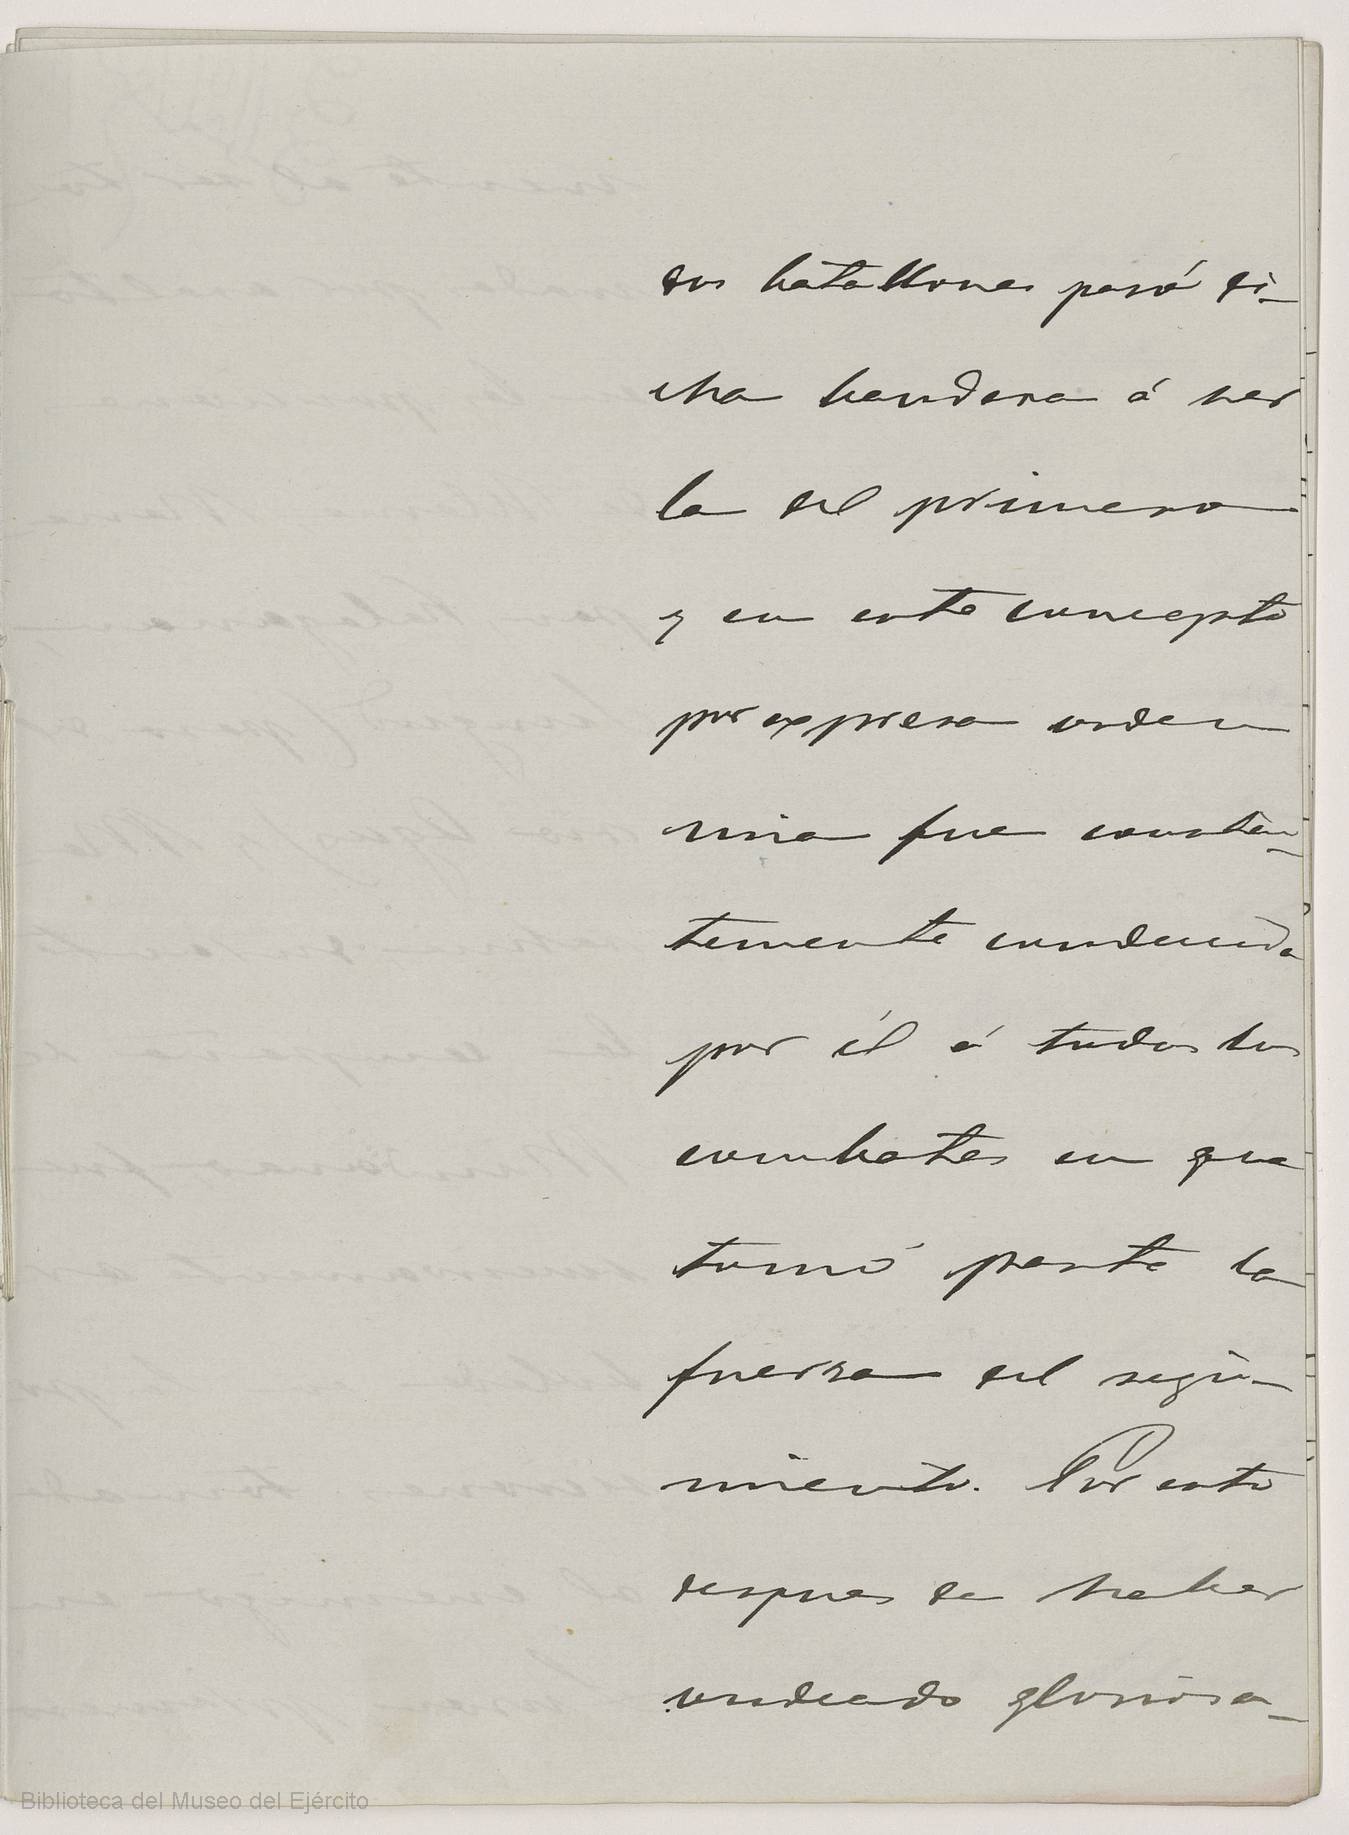 dos batallones pasó di-
cha bandera á ser
la del primero
y en este concepto
por expresa orden
mia fue constan-
temente conducida
por él á todos los
combates en que
tomó parte la
fuerza del regi-
miento. Por esto
despues de haber
ondeado gloriosa-
Biblioteca del Museo del Ejército